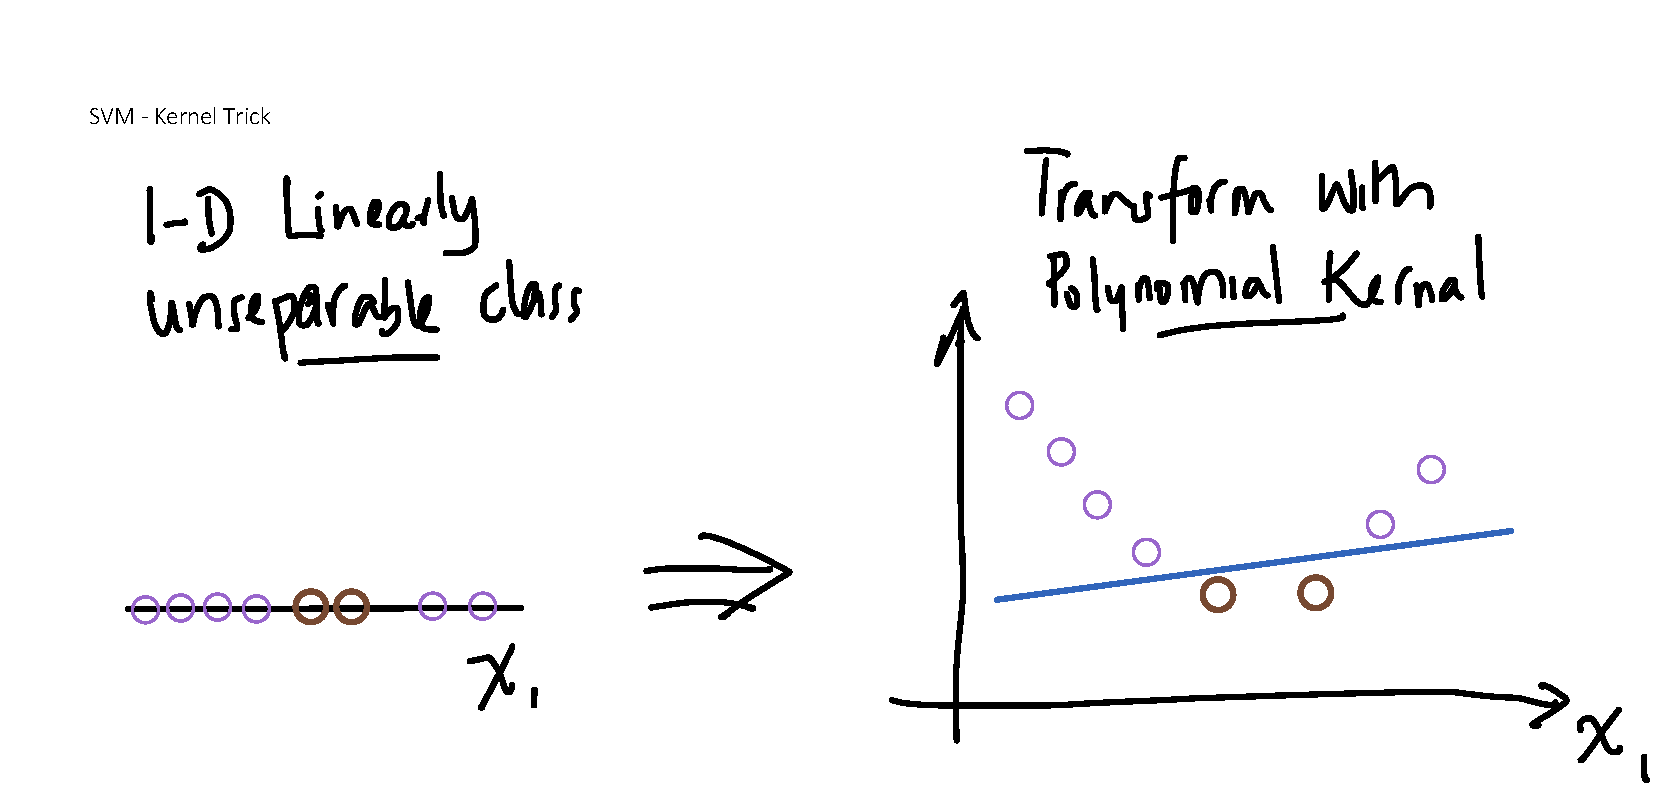 SVM - Kernel Trick
1-D Linearly
unseparable class
Transform with
Polynomial Kernal
x₁
x₁